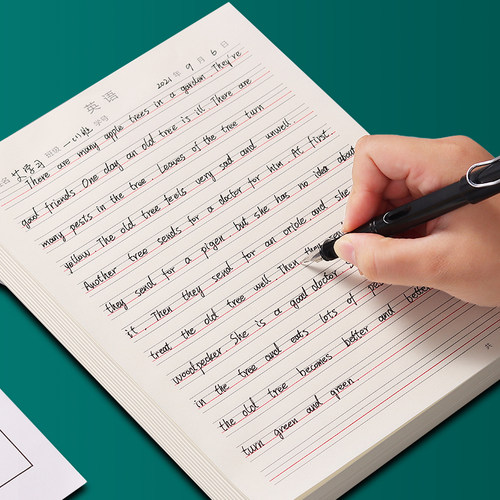 英语
2021年9月6日
姓名 班级 一(1)班 学号
There are many apple trees in a garden. They're
good friends. One day an old tree is ill. There are
many pests in the tree. Leaves of the tree turn
yellow. The old tree feels very sad and unwell.
Another tree sends for a doctor for him. At first,
they send for a pigen but she has no idea about
it. Then they send for an oriole and she
treat the old tree well. Then they se
woodpecker. She is a good doctor
in the tree and eats lots of pe
the old tree becomes better and bette
turn green and green